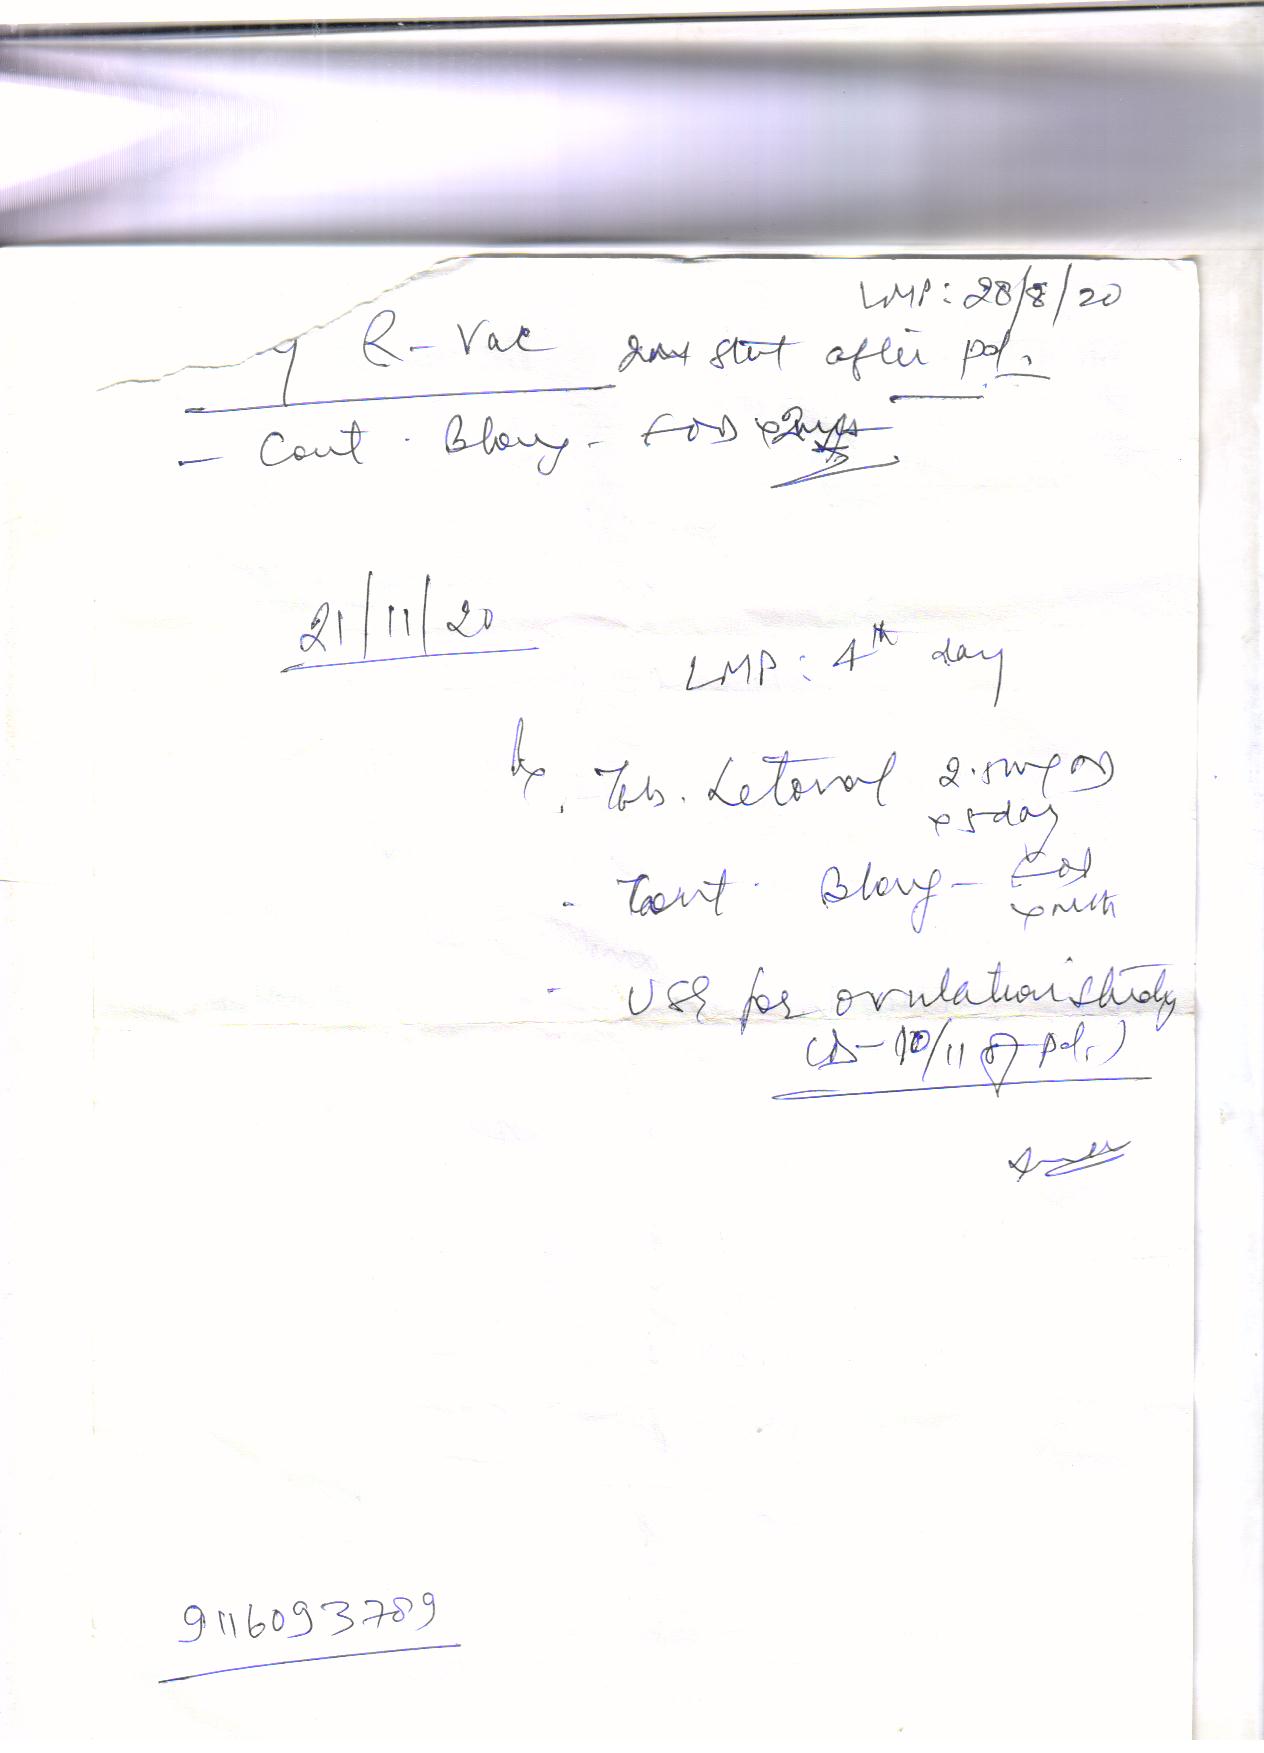 LMP: 28/8/20
R-Vac stat after pd.
- Cont. Blong - OD
21/11/20
LMP: 4th day
Rx, Tab. Letoval 2.5mg OD
x 5day
- Cont. Blong - OD
x mth
- USG for ovulation study
(D-10/11 of pd.)
9116093789